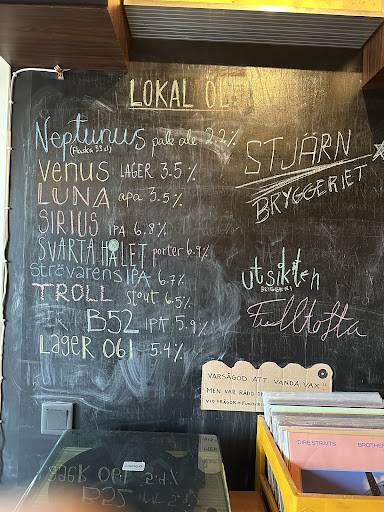 LOKAL ÖL
Neptunus pale ale 2.2%
(Flaska 33cl)
VENUS LAGER 3.5%
LUNA apa 3.5%
SIRIUS IPA 6.8%
SVARTA HÅLET porter 6.9%
Strövarens IPA 6.7%
TROLL stout 6.5%
B52 IPA 5.9%
LAGER 061 5.4%
STJÄRN
BRYGGERIET
utsikten
BRYGGERI
Fulltofta
VARSÅGOD ATT VÄNDA VAX
MEN VAR RÄDD
VID FRÅGOR
DIRE STRAITS BROTHERS